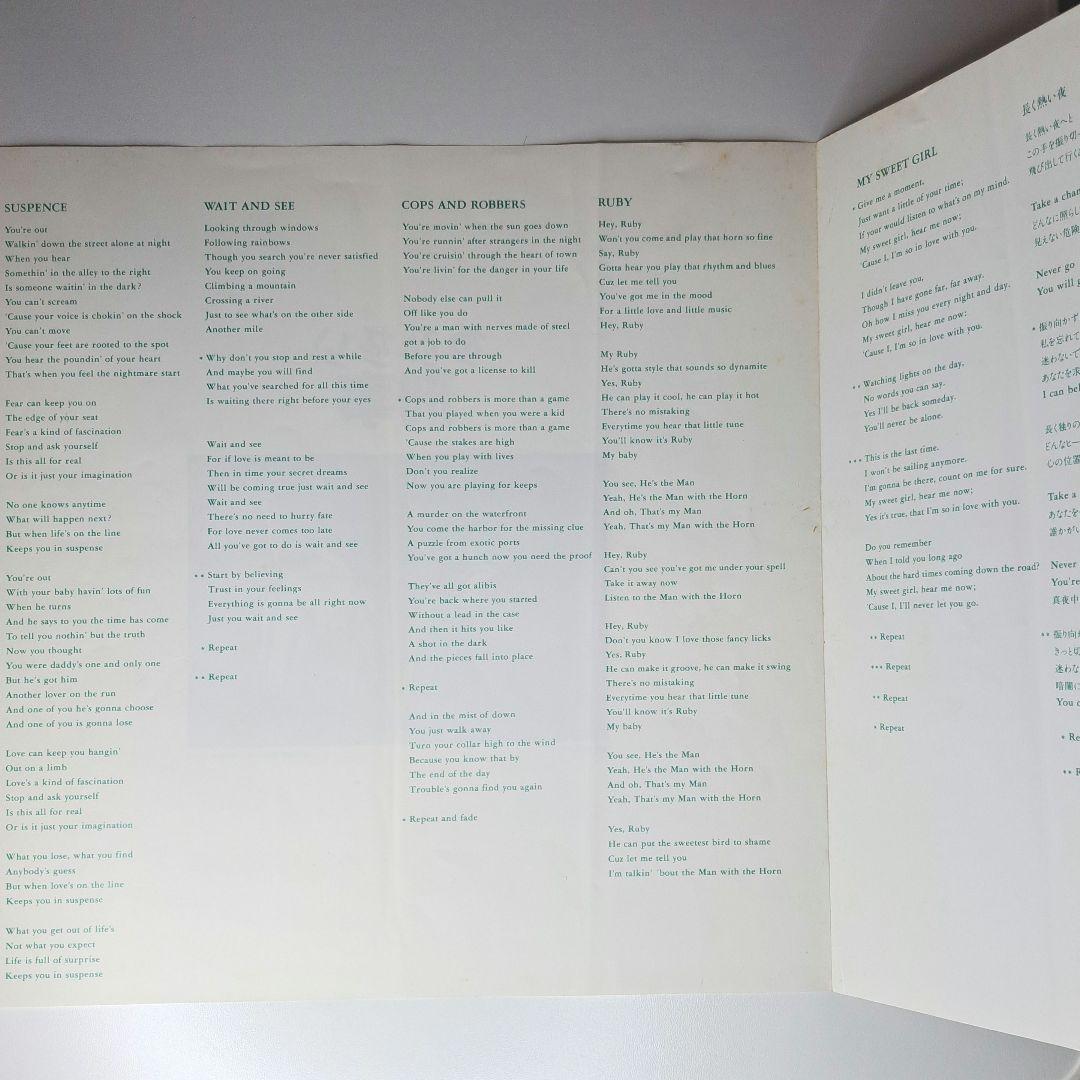 SUSPENCE
You're out
Walkin' down the street alone at night
When you hear
Somethin' in the alley to the right
Is someone waitin' in the dark?
You can't scream
'Cause your voice is chokin' on the shock
You can't move
'Cause your feet are rooted to the spot
You hear the poundin' of your heart
That's when you feel the nightmare start
Fear can keep you on
The edge of your seat
Fear's a kind of fascination
Stop and ask yourself
Is this all for real
Or is it just your imagination
No one knows anytime
What will happen next?
But when life's on the line
Keeps you in suspense
You're out
With your baby havin' lots of fun
When he turns
And he says to you the time has come
To tell you nothin' but the truth
Now you thought
You were daddy's one and only one
But he's got him
Another lover on the run
And one of you he's gonna choose
And one of you is gonna lose
Love can keep you hangin'
Out on a limb
Love's a kind of fascination
Stop and ask yourself
Is this all for real
Or is it just your imagination
What you lose, what you find
Anybody's guess
But when love's on the line
Keeps you in suspense
What you get out of life's
Not what you expect
Life is full of surprise
Keeps you in suspense
WAIT AND SEE
Looking through windows
Following rainbows
Though you search you're never satisfied
You keep on going
Climbing a mountain
Crossing a river
Just to see what's on the other side
Another mile
* Why don't you stop and rest a while
And maybe you will find
What you've searched for all this time
Is waiting there right before your eyes
Wait and see
For if love is meant to be
Then in time your secret dreams
Will be coming true just wait and see
Wait and see
There's no need to hurry fate
For love never comes too late
All you've got to do is wait and see
** Start by believing
Trust in your feelings
Everything is gonna be all right now
Just you wait and see
* Repeat
** Repeat
COPS AND ROBBERS
You're movin' when the sun goes down
You're runnin' after strangers in the night
You're cruisin' through the heart of town
You're livin' for the danger in your life
Nobody else can pull it
Off like you do
You're a man with nerves made of steel
got a job to do
Before you are through
And you've got a license to kill
* Cops and robbers is more than a game
That you played when you were a kid
Cops and robbers is more than a game
'Cause the stakes are high
When you play with lives
Don't you realize
Now you are playing for keeps
A murder on the waterfront
You come the harbor for the missing clue
A puzzle from exotic ports
You've got a hunch now you need the proof
They've all got alibis
You're back where you started
Without a lead in the case
And then it hits you like
A shot in the dark
And the pieces fall into place
* Repeat
And in the mist of down
You just walk away
Turn your collar high to the wind
Because you know that by
The end of the day
Trouble's gonna find you again
* Repeat and fade
RUBY
Hey, Ruby
Won't you come and play that horn so fine
Say, Ruby
Gotta hear you play that rhythm and blues
Cuz let me tell you
You've got me in the mood
For a little love and little music
Hey, Ruby
My Ruby
He's gotta style that sounds so dynamite
Yes, Ruby
He can play it cool, he can play it hot
There's no mistaking
Everytime you hear that little tune
You'll know it's Ruby
My baby
You see, He's the Man
Yeah, He's the Man with the Horn
And oh, That's my Man
Yeah, That's my Man with the Horn
Hey, Ruby
Can't you see you've got me under your spell
Take it away now
Listen to the Man with the Horn
Hey, Ruby
Don't you know I love those fancy licks
Yes, Ruby
He can make it groove, he can make it swing
There's no mistaking
Everytime you hear that little tune
You'll know it's Ruby
My baby
You see, He's the Man
Yeah, He's the Man with the Horn
And oh, That's my Man
Yeah, That's my Man with the Horn
Yes, Ruby
He can put the sweetest bird to shame
Cuz let me tell you
I'm talkin' 'bout the Man with the Horn
MY SWEET GIRL
* Give me a moment,
Just want a little of your time;
If your would listen to what's on my mind.
My sweet girl, hear me now;
'Cause I, I'm so in love with you.
I didn't leave you,
Though I have gone far, far away.
Oh how I miss you every night and day.
My sweet girl, hear me now:
'Cause I, I'm so in love with you.
** Watching lights on the day,
No words you can say.
Yes I'll be back someday.
You'll never be alone.
*** This is the last time.
I won't be sailing anymore.
I'm gonna be there, count on me for sure.
My sweet girl, hear me now;
Yes it's true, that I'm so in love with you.
Do you remember
When I told you long ago
About the hard times coming down the road?
My sweet girl, hear me now;
'Cause I, I'll never let you go.
** Repeat
*** Repeat
** Repeat
* Repeat
長く熱い夜
長く熱い夜へと
この手を振り切っ
飛び出して行く
Take a chan
どんなに照らし
見えない危険
Never go
You will g
* 振り向かず
私を忘れて
迷わないで
あなたを求
I can bel
長く独りの
どんなヒー
心の位置
Take a
あなたを
誰かがい
Never
You're
真夜中
** 振り向か
きっと切
迷わな
暗闇に
You c
* Re
** R